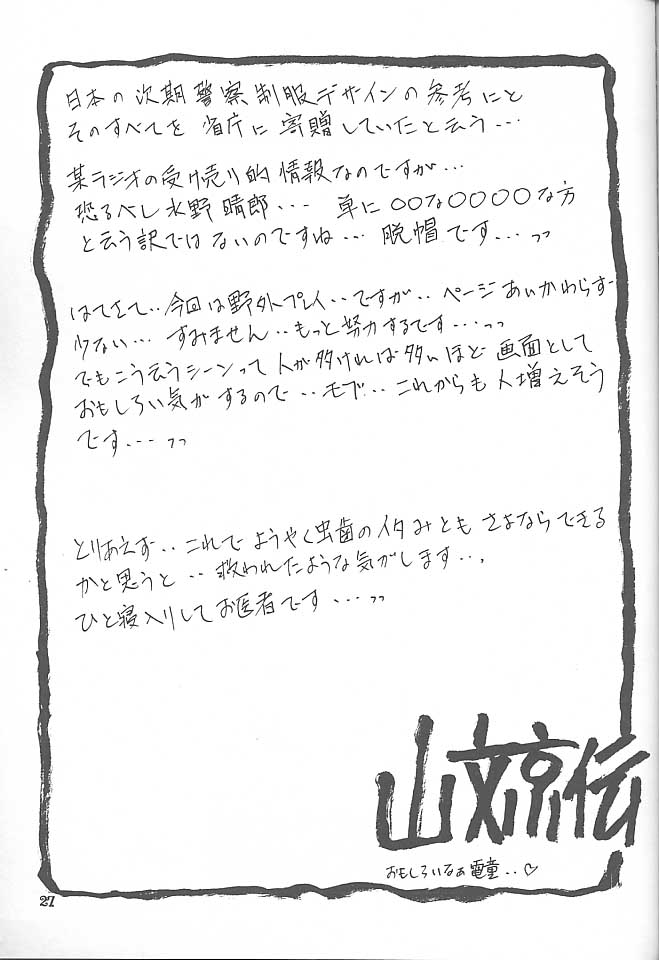 日本の次期警察制服デザインの参考にと
そのすべてを省庁に寄贈していたと云う…
某ラジオの受け売り的情報なのですが…
恐るべし水野晴郎… 単に○○な○○○○な方
と云う訳ではないのですね… 脱帽です…っっ
はてさて‥今回は野外プレイ‥ですが‥ページあいかわらず
少ない… すみません‥もっと努力するです…っっ
でもこう云うシーンって人が多ければ多いほど画面として
おもしろい気がするので‥モブ…これからも人増えそう
です…っっ
とりあえず‥これでようやく虫歯のイタみともさよならできる
かと思うと‥救われたような気がします‥，
ひと寝入りしてお医者です…っっ
山文京伝
おもしろいなぁ電童‥♡
27